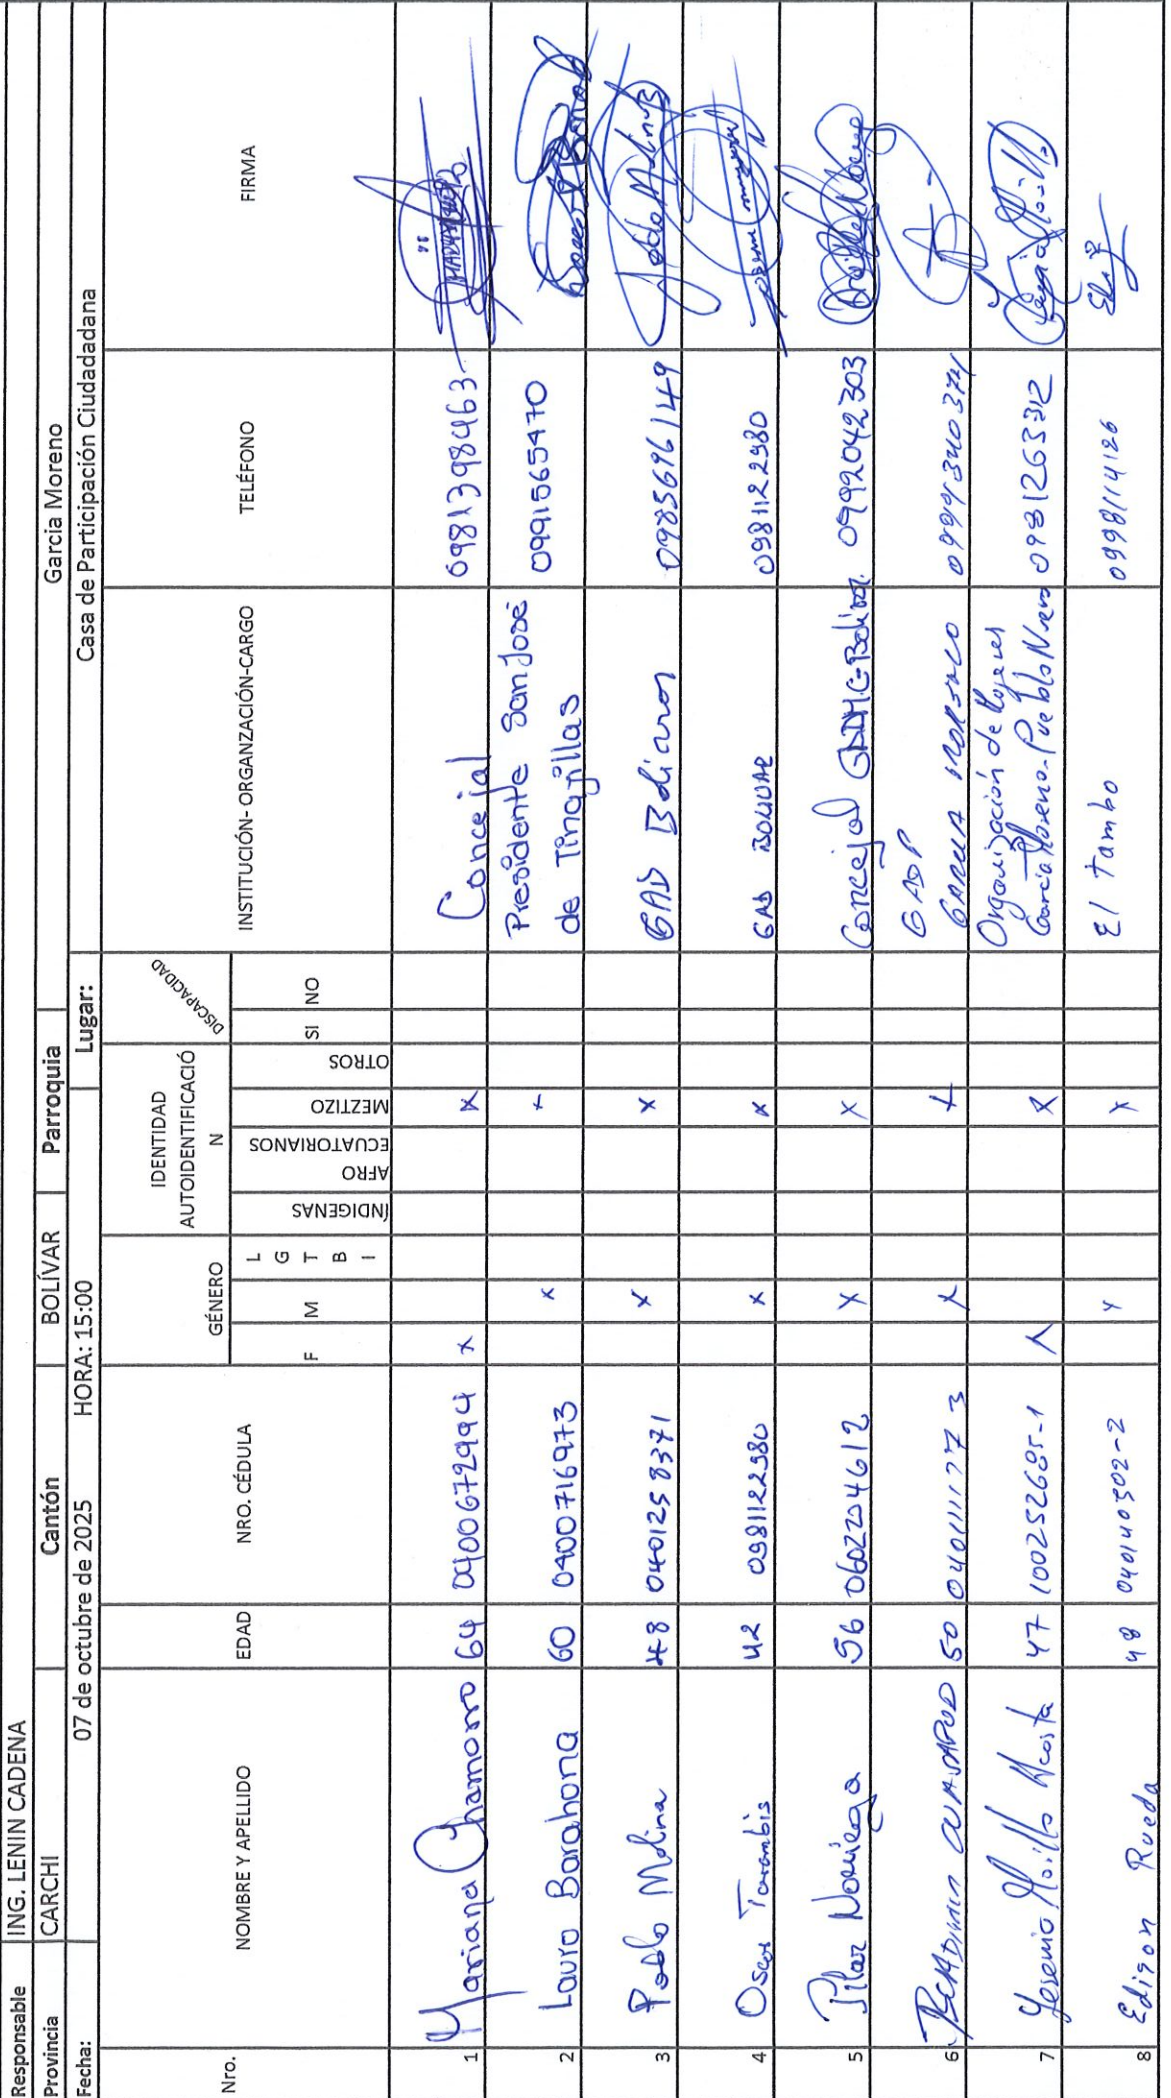 Responsable ING. LENIN CADENA
Provincia CARCHI Cantón BOLÍVAR Parroquia Garcia Moreno
Fecha: 07 de octubre de 2025 HORA: 15:00 Lugar: Casa de Participación Ciudadadana
Nro. NOMBRE Y APELLIDO EDAD NRO. CÉDULA GÉNERO IDENTIDAD AUTOIDENTIFICACIÓ N DISCAPACIDAD INSTITUCIÓN- ORGANZACIÓN-CARGO TELÉFONO FIRMA
F M L G T B I ÍNDIGENAS AFRO ECUATORIANOS MEZTIZO OTROS SI NO
1 Mariana Chamorro 64 0400672994 x x Concejal 0981398463
2 Lauro Barahona 60 0400716973 x x Presidente San José de Tinajillas 0991565470
3 Pablo Molina 48 0401258371 x x GAD Bolivar 0985696149
4 Oscar 42 0981122980 x x GAD BOLIVAR 0981122980
5 Pilar Noriega 56 0602204612 x x Concejal GADMC-Bolívar 0992042303
6 50 x x GADP GARCIA MORENO
7 Yesenia Morillo Acosta 47 100252685-1 x x Organización de Mujeres García Moreno-Pueblo Nuevo 0981263312
8 Edison Rueda 48 040140302-2 x x El Tambo 0998114126